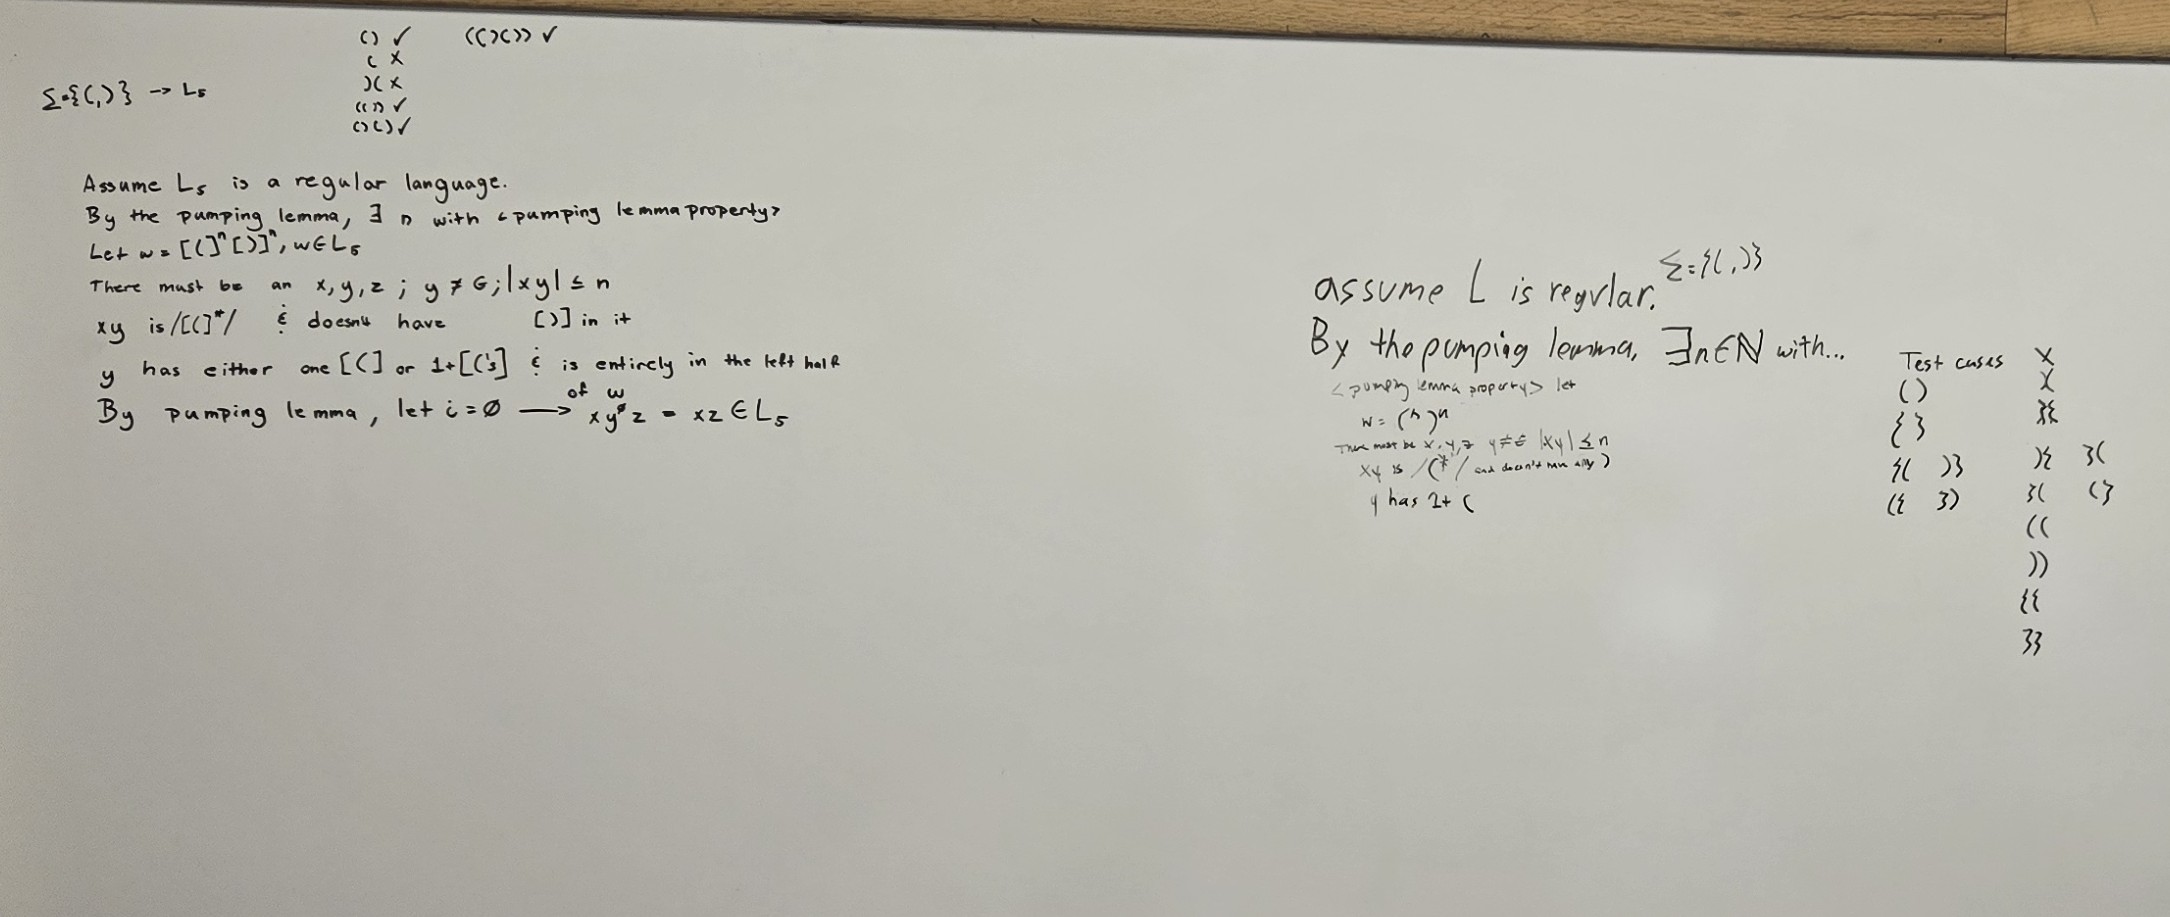 () ✓ (()()) ✓
( X
)( X
Σ={(,)} -> L5
(()) ✓
()() ✓
Assume L5 is a regular language.
By the pumping lemma, ∃ n with <pumping lemma property>
Let w = [(]^n [)]^n, w∈L5
There must be an x,y,z ; y ≠ ϵ; |xy| ≤ n
xy is /[(]*/ & doesn't have [)] in it
y has either one [(] or 1+ [('s] & is entirely in the left half
of w
By pumping lemma, let i = ∅ → xy^∅z = xz ∈ L5
Σ={(,)}
assume L is regular.
By the pumping lemma, ∃n∈ℕ with...
<pumping lemma property> let
w = (^n )^n
There must be x,y,z y≠ϵ |xy| ≤ n
xy is /(*/ and doesn't have any )
y has 1+ (
Test cases
()
{}
{( )}
({ })
X
)(
}{
){ }(
}( (}
((
))
{{
}}